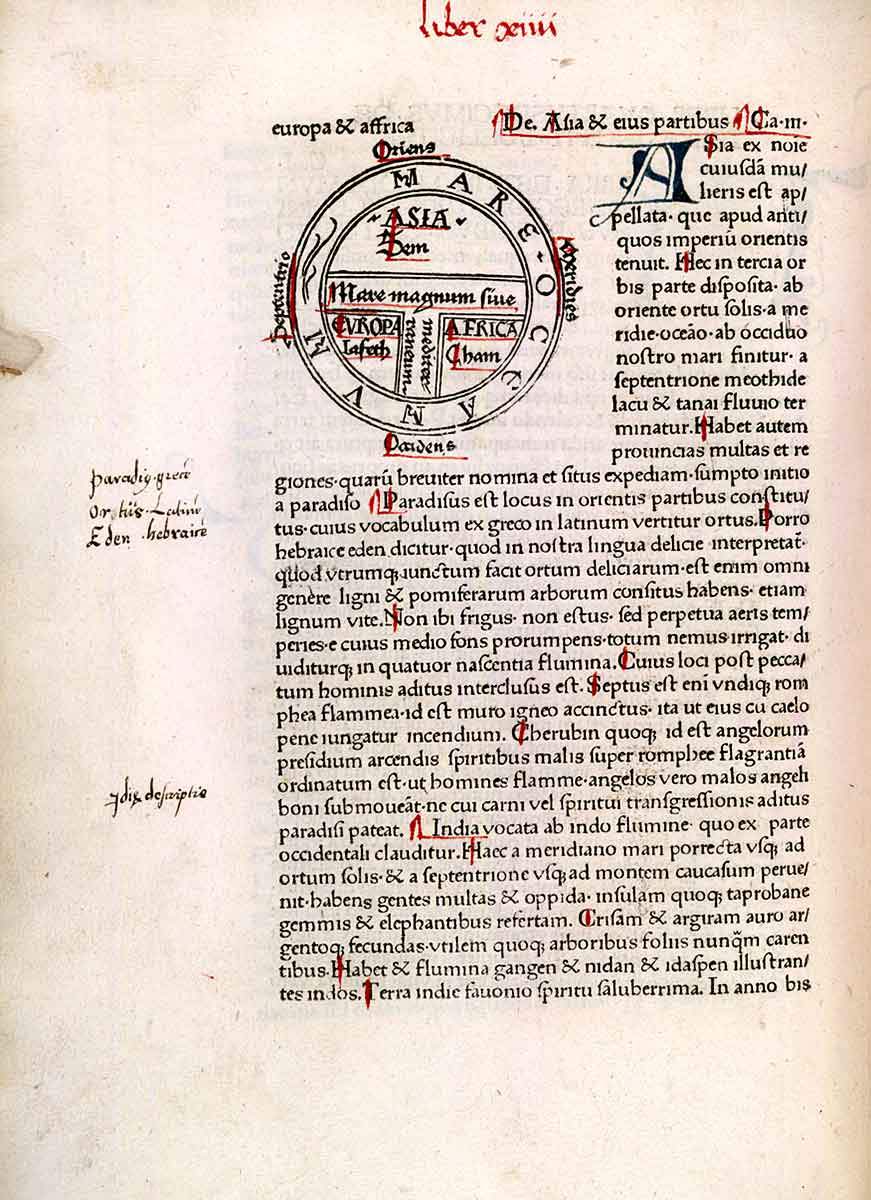 liber xiiii
europa & affrica
De. Asia & eius partibus Ca·m·
Oriens
MARE OCEANUM
ASIA
Sem
Mare magnum siue
mediterraneum
EVROPA
Iafeth
AFRICA
Cham
Septentrio
Meridies
Occidens
ASia ex noīe
cuiusdā mu/
lieris est ap/
pellata· que apud anti/
quos imperiū orientis
tenuit. Hec in tercia or
bis parte disposita· ab
oriente ortu solis· a me
ridie·oceāo·ab occiduo
nostro mari finitur· a
septentrione meothide
lacu & tanai fluuio ter
minatur. Habet autem
prouincias multas et re
giones·quarū breuiter nomina et situs expediam·sumpto initio
a paradiso Paradisus est locus in orientis partibus constitu/
tus·cuius vocabulum ex greco in latinum vertitur ortus. Porro
hebraice eden dicitur·quod in nostra lingua delicie interpretat̄·
quod vtrumq; iunctum facit ortum deliciarum·est enim omni
genere ligni & pomiferarum arborum consitus habens· etiam
lignum vite. Non ibi frigus· non estus· sed perpetua aeris tem/
peries·e cuius medio fons prorumpens·totum nemus irrigat· di
uiditurq; in quatuor nascentia flumina. Cuius loci post pecca/
tum hominis aditus interclusus est. Septus est eni̅ vndiq; rom
phea flammea·id est muro igneo accinctus· ita ut eius cu caelo
pene iungatur incendium. Cherubin quoq; id est angelorum
presidium arcendis spiritibus malis super romphee flagrantiā
ordinatum est·ut homines flamme·angelos vero malos angeli
boni submoueāt·ne cui carni vel spiritui transgressionis aditus
paradisi pateat. India vocata ab indo flumine· quo ex parte
occidentali clauditur. Haec a meridiano mari porrecta vsq; ad
ortum solis·& a septentrione vsq; ad montem caucasum perue/
nit·habens gentes multas & oppida· insulam quoq; taprobane
gemmis & elephantibus refertam. Crisam & argiram auro ar/
gentoq; fecundas·vtilem quoq; arboribus foliis nunq̄m caren
tibus. Habet & flumina gangen & nidan & idaspen illustran/
tes indos. Terra indie fauonio spiritu saluberrima. In anno bis
ortus· Latine
Eden hebraice
descriptio